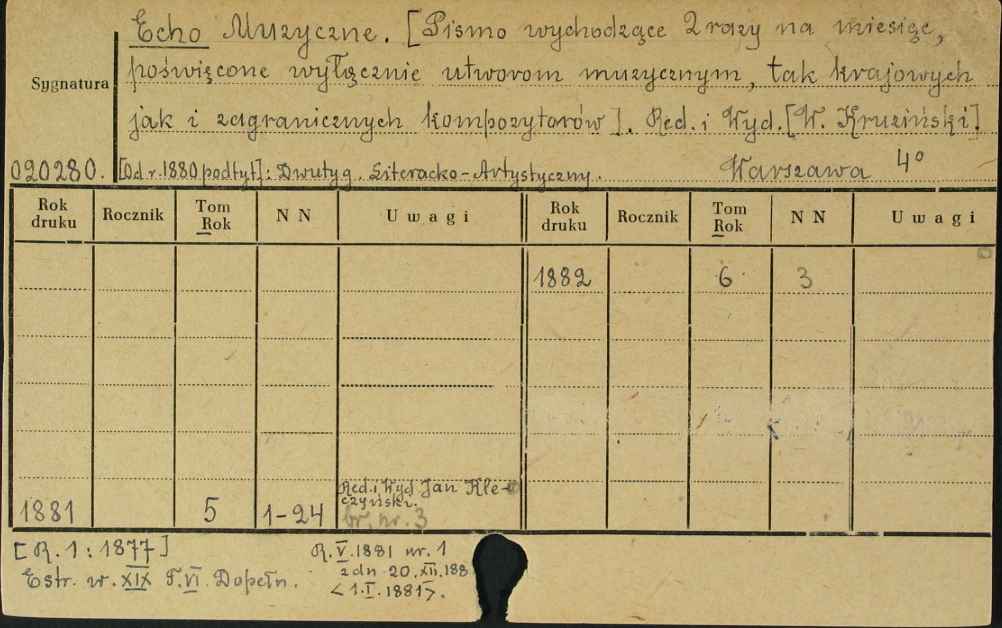 Echo Muzyczne. [Pismo wychodzące 2 razy na miesiąc,
Sygnatura
poświęcone wyłącznie utworom muzycznym, tak krajowych
jak i zagranicznych kompozytorów]. Red. i Wyd. [W. Kruziński].
020280. [Od r. 1880 podtyt]: Dwutyg. Literacko-Artystyczny. Warszawa 4°
Rok druku Rocznik Tom Rok N N Uwagi Rok druku Rocznik Tom Rok N N Uwagi
1882 6 3
1881 5 1-24 Red. i Wyd. Jan Kle-
czyński.
br. nr. 3
[R. 1: 1877] R. V. 1881 nr. 1
Estr. w. XIX T. VI. Dopełn. z dn 20. XII. 188
<1. I. 1881>.